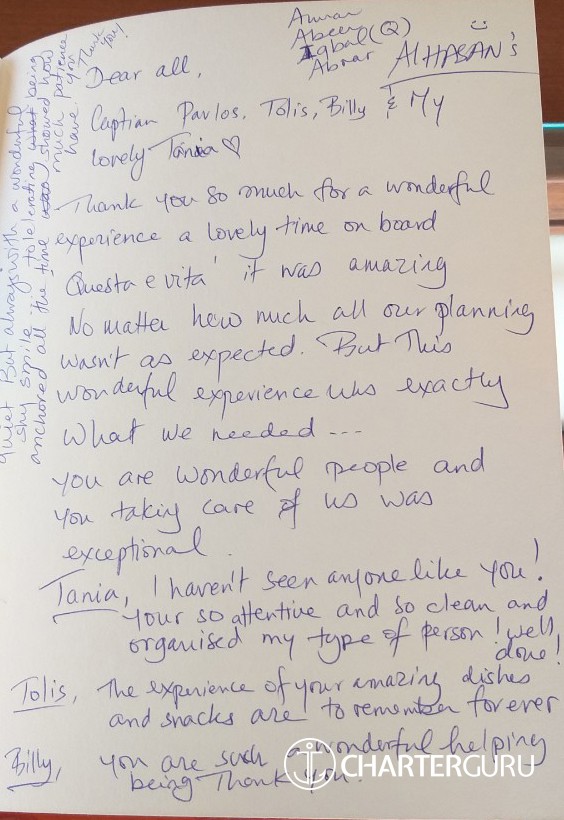 Amar
Abeer
Iqbal (Q)
Abrar
AlHASAN's
Dear all,
Captian Pavlos, Tolis, Billy & My
lovely Tania
Thank you so much for a wonderful
experience a lovely time on board
Questa e vita' it was amazing
No matter how much all our planning
wasn't as expected. But This
wonderful experience was exactly
What we needed ---
you are wonderful people and
you taking care of us was
exceptional.
Tania, I haven't seen anyone like you!
Your so attentive and so clean and
organised my type of person! well
done!
Tolis, The experience of your amazing dishes
and snacks are to remember forever
Billy, you are such a wonderful helping
being Thank you.
quiet But always with a wonderful
shy smile, tolerating what being
anchored all the time showed how
much patience
you have
Thank
You!
CHARTERGURU